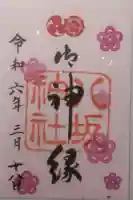 御神縁
八坂神社
令和六年 三月 十八日